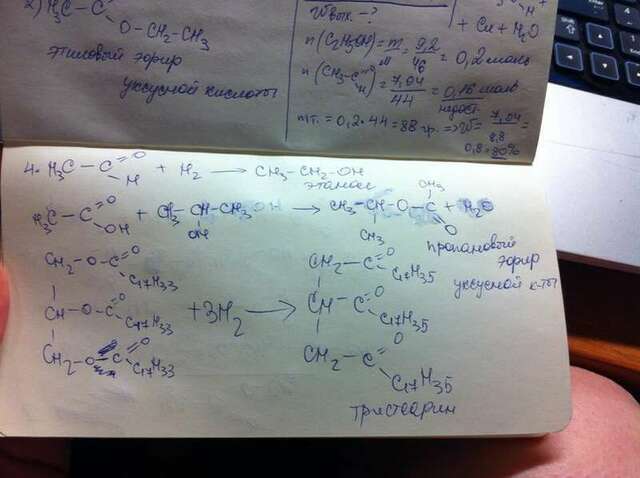 2) H₃C – C
O – CH₂ – CH₃
этиловый эфир
уксусной кислоты
Wвых. – ?
+ Cu + H₂O
n(C₂H₅OH) = m/M = 9,2/46 = 0,2 моль
n(CH₃–C=O H) = 7,04/44 = 0,16 моль
недост.
mт. = 0,2 · 44 = 88 гр. => W = 7,04/8,8 =
0,8 = 80%
4. H₃C – C =O H + H₂ → CH₃ – CH₂ – OH
этанол
H₃C – C =O OH + CH₃ – CH – CH₃ OH → CH₃ – CH – O – C =O CH₃ + H₂O
OH
CH₃
пропановый
эфир
уксусной к-ты
CH₂ – O – C =O C₁₇H₃₃
CH – O – C =O C₁₇H₃₃ + 3H₂ →
CH₂ – O – C =O C₁₇H₃₃
CH₂ – C =O C₁₇H₃₅
CH – C =O C₁₇H₃₅
CH₂ – C =O C₁₇H₃₅
тристеарин